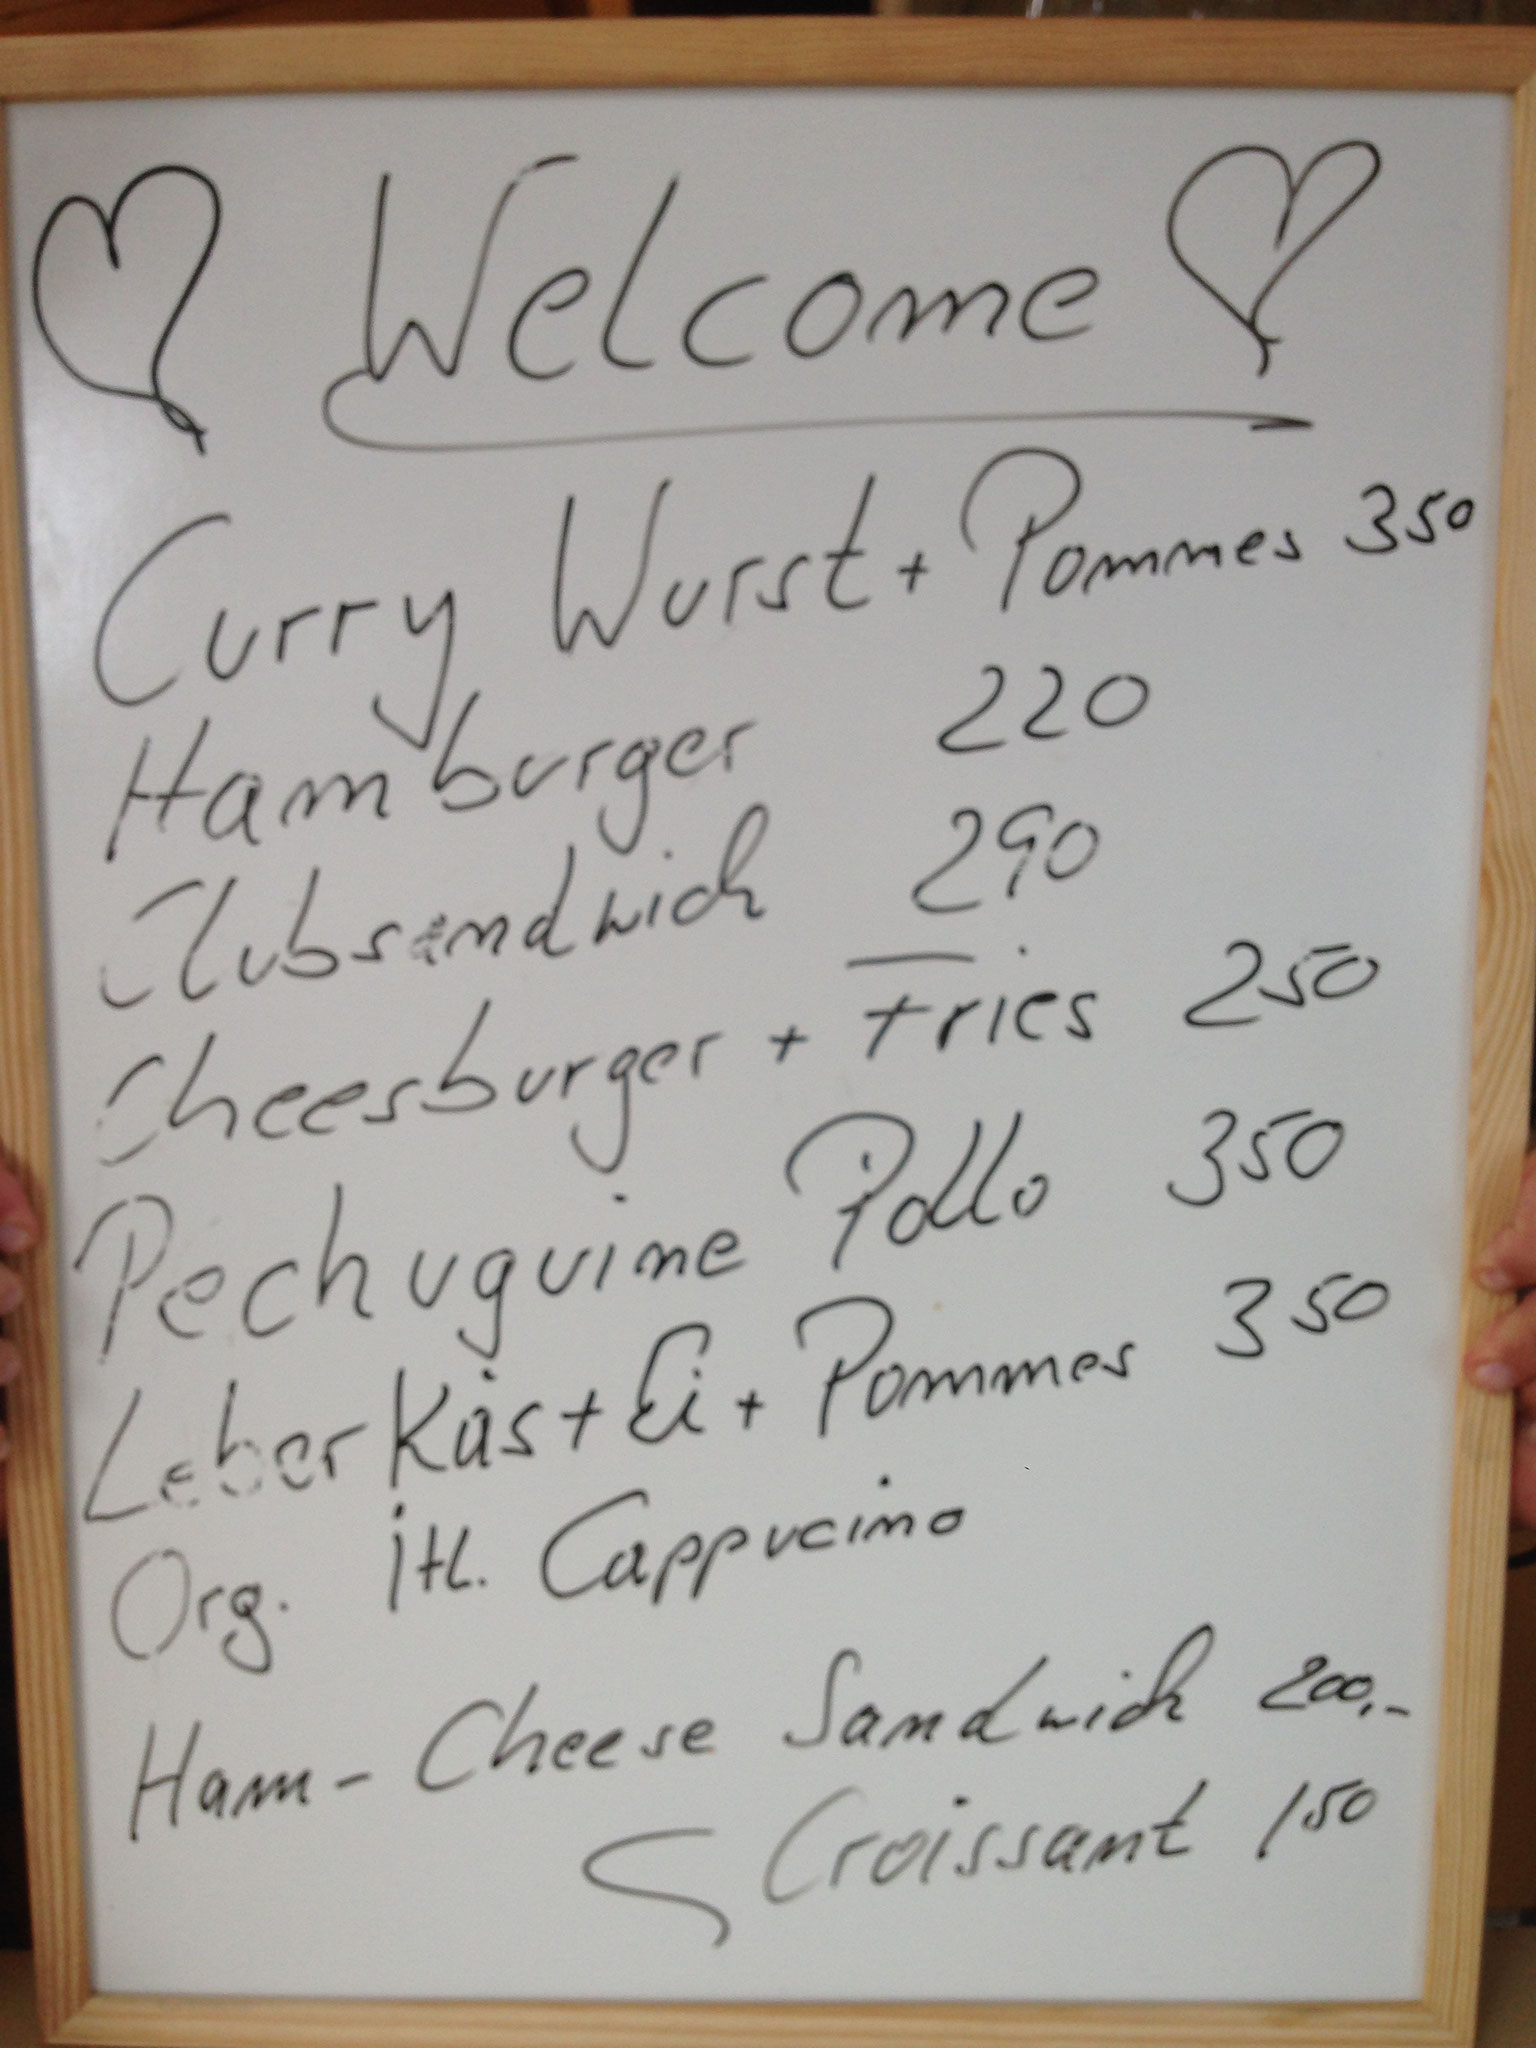 Welcome
Curry Wurst + Pommes 350
Hamburger 220
Clubsandwich 290
Cheesburger + Fries 250
Pechuguine Pollo 350
Leber Käs + Ei + Pommes 350
Org. Itl. Cappucino
Ham - Cheese Sandwich 200,-
Croissant 150